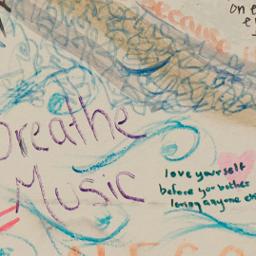 on e
because i
Breathe
Music
love yourself
before you bother
loving anyone els